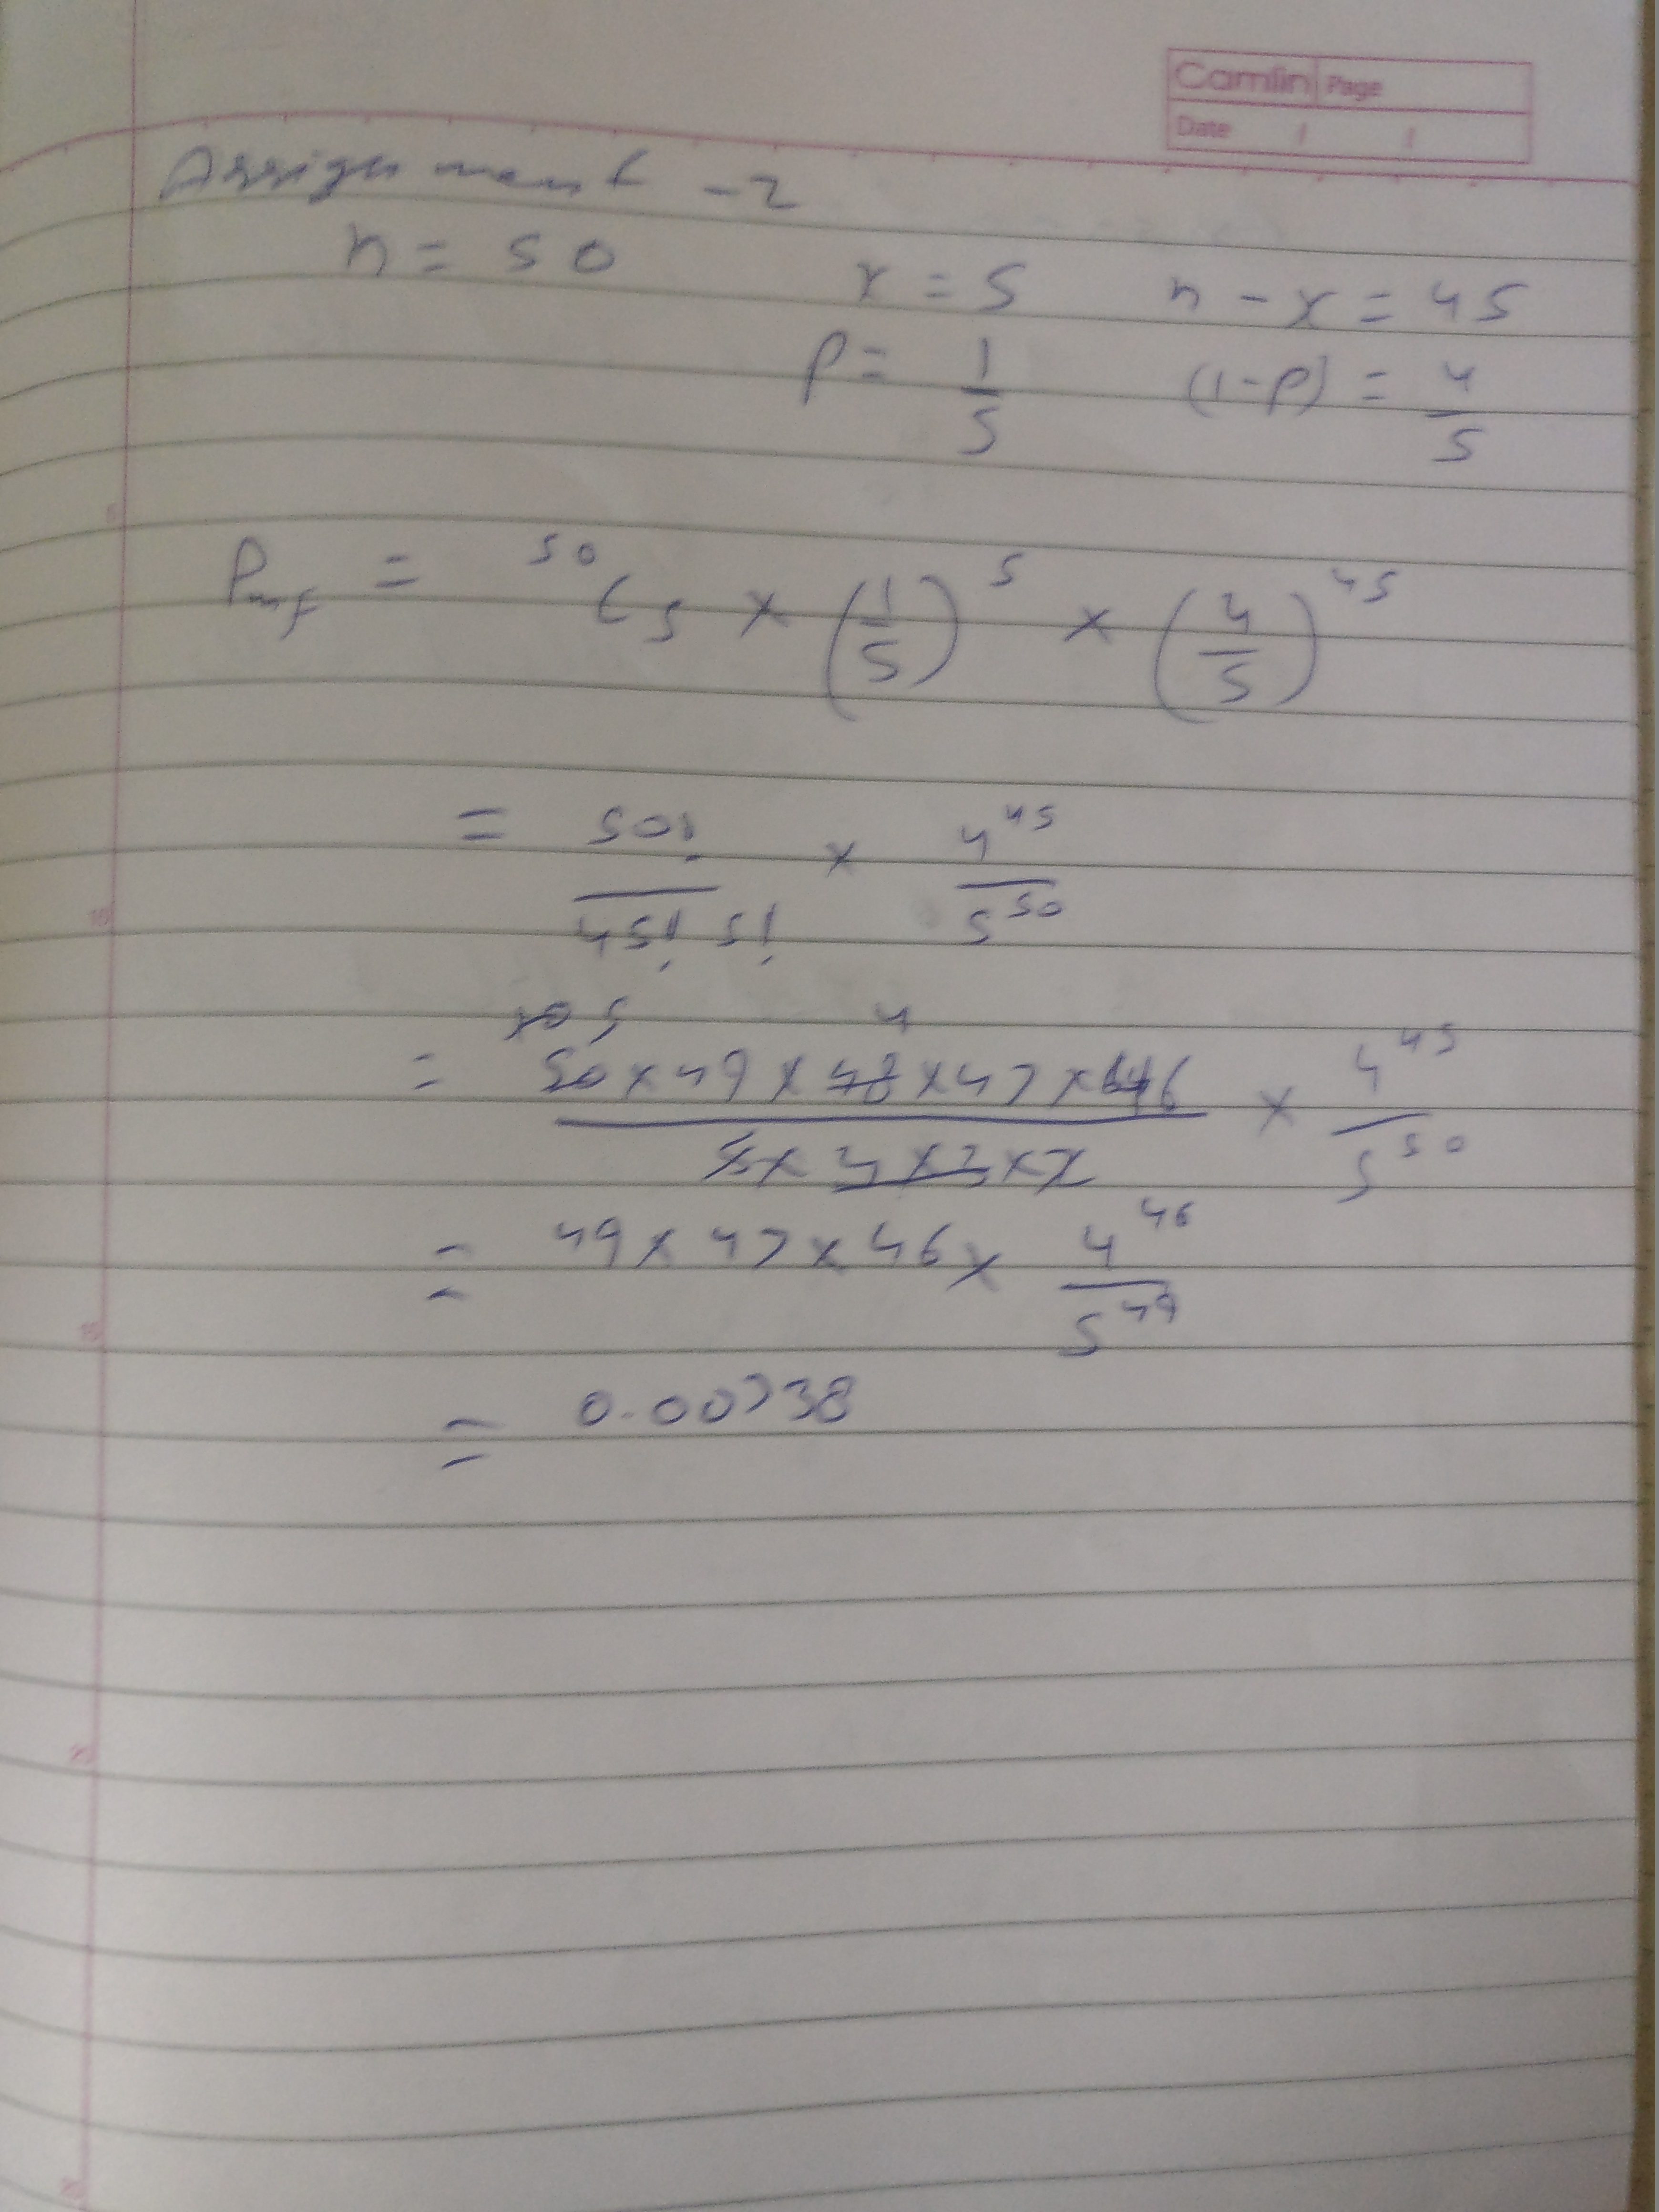 Camlin Page
Date / /
Assignment -2
n = 50 x = 5 n - x = 45
p = 1/5 (1-p) = 4/5
Pmf = ⁵⁰C₅ × (1/5)⁵ × (4/5)⁴⁵
= 50!/(45! 5!) × 4⁴⁵/5⁵⁰
10 5 4
= (50 × 49 × 48 × 47 × 46)/(5 × 4 × 3 × 2) × 4⁴⁵/5⁵⁰
= 49 × 47 × 46 × 4⁴⁶/5⁴⁹
= 0.00738